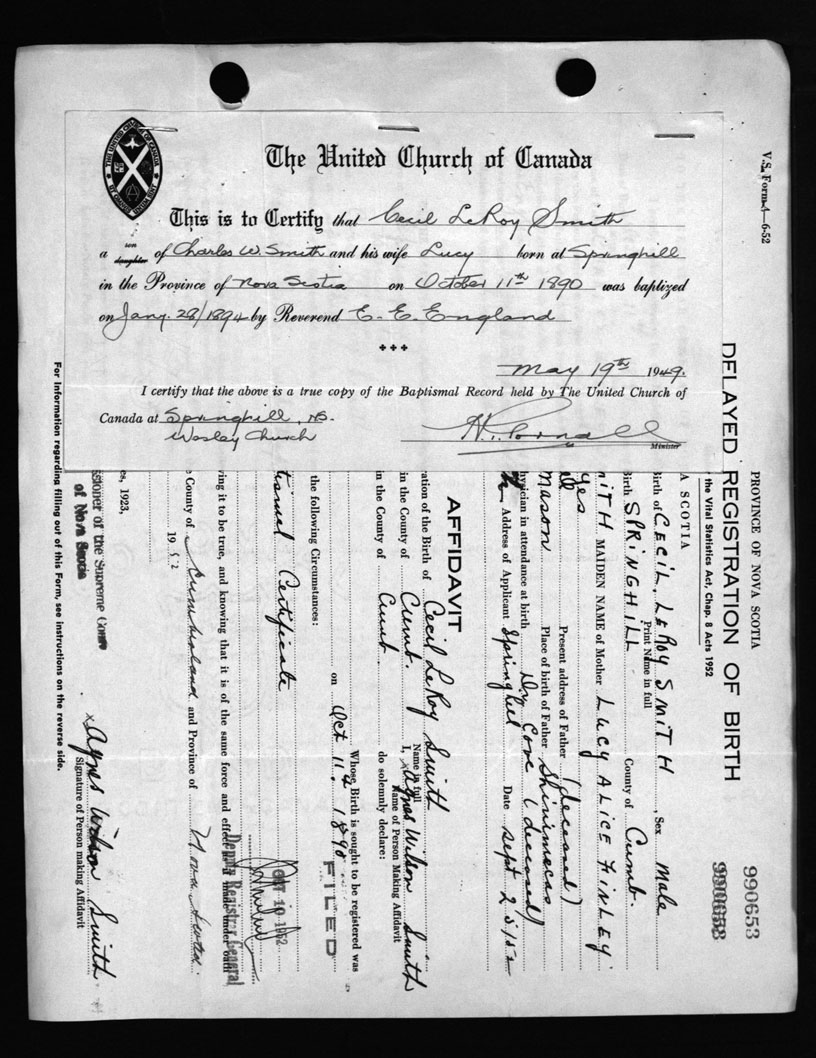 The United Church of Canada
This is to Certify that Cecil LeRoy Smith
a son daughter of Charles W. Smith and his wife Lucy born at Springhill
in the Province of Nova Scotia on October 11th 1890 was baptized
on Jany. 28/1894 by Reverend E. E. England
May 19th 1949.
I certify that the above is a true copy of the Baptismal Record held by The United Church of
Canada at Springhill, NS.
Wesley Church
Minister
V.S. Form 4—6-52
PROVINCE OF NOVA SCOTIA
990653
DELAYED REGISTRATION OF BIRTH
990653
the Vital Statistics Act, Chap. 8 Acts 1952
A SCOTIA
Birth of CECIL LEROY SMITH, Sex Male
Print Name in full
Birth SPRINGHILL County of Cumb.
MITH MAIDEN NAME of Mother LUCY ALICE FINLEY
yes Present address of Father (deceased)
Mason Place of birth of Father Shinimecas
hysician in attendance at birth Dr Cove (deceased)
Address of Applicant Springhill Date Sept 25/52
AFFIDAVIT
ration of the Birth of Cecil LeRoy Smith
Name in full
in the County of Cumb. I, Agnes Wilson Smith
Name of Person Making Affidavit
in the County of Cumb. do solemnly declare:
Whose Birth is sought to be registered was
on Oct 11th 1890
FILED
the following Circumstances:
OCT 10 1952
tismal Certificate
Deputy Registrar General
ving it to be true, and knowing that it is of the same force and effect as if made under oath
e County of Cumberland and Province of Nova Scotia.
1952
es, 1923,
ssioner of the Supreme Court
of Nova Scotia
x Agnes Wilson Smith
Signature of Person making Affidavit
For Information regarding filling out of this Form, see instructions on the reverse side.